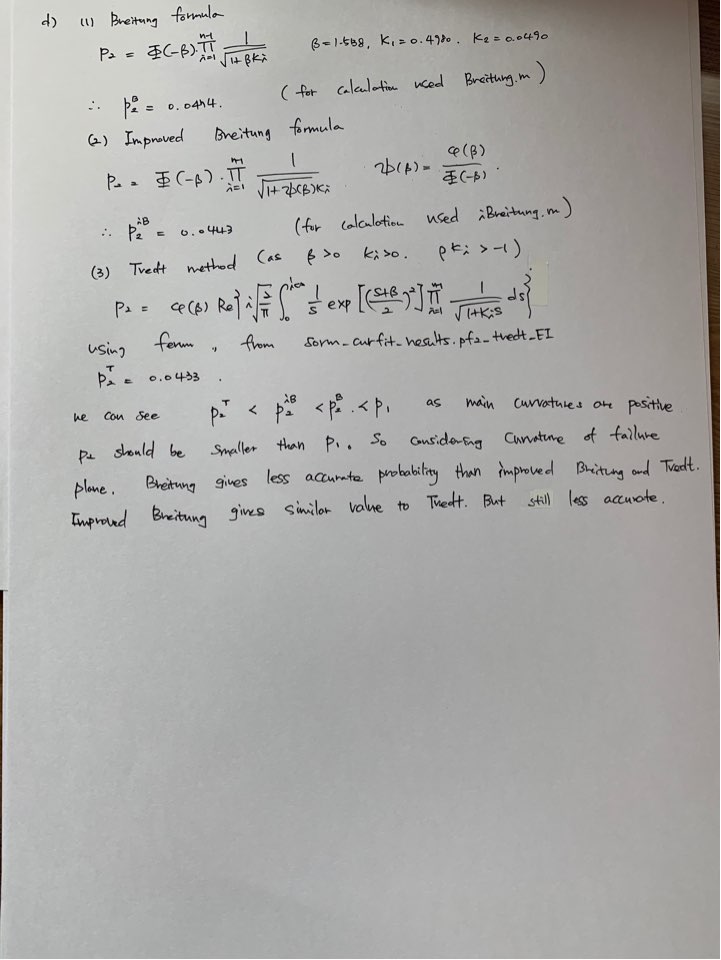 d) (1) Breitung formula
P₂ = Φ(-β)·∏ᵢ₌₁ⁿ⁻¹ 1/√(1+βKᵢ) β=1.588, K₁=0.4980. K₂=0.0490
∴ p₂ᴮ = 0.0474. (for calculation used Breitung.m)
(2) Improved Breitung formula
P₂ = Φ(-β)·∏ᵢ₌₁ⁿ⁻¹ 1/√(1+ψ(β)Kᵢ) ψ(β) = φ(β)/Φ(-β).
∴ p₂ⁱᴮ = 0.0443 (for calculation used iBreitung.m)
(3) Tvedt method (as β>0 Kᵢ>0. βKᵢ > -1)
P₂ = φ(β) Re{i√(2/π) ∫₀ⁱ∞ 1/s exp[((s+β)/2)²] ∏ᵢ₌₁ⁿ⁻¹ 1/√(1+Kᵢs) ds}
using ferum, from sorm_curfit_results.pf2_tvedt_EI
p₂ᵀ = 0.0433.
we can see p₂ᵀ < p₂ⁱᴮ < p₂ᴮ. < p₁ as main curvatures are positive
p₂ should be smaller than p₁. So considering curvature of failure
plane. Breitung gives less accurate probability than improved Breitung and Tvedt.
Improved Breitung gives similar value to Tvedt. But still less accurate.